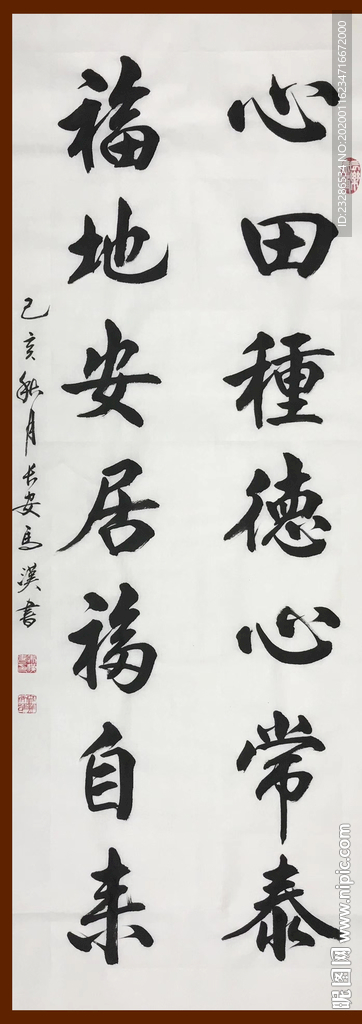 心田種德心常泰
福地安居福自来
己亥秋月长安马漢書
ID:23286534 NO:20200116234716672000
昵图网 www.nipic.com